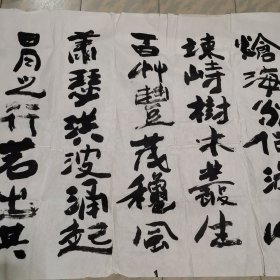 海何
竦峙樹木叢生
百艸豐茂穐風
蕭瑟洪波涌起
日月之行若出其